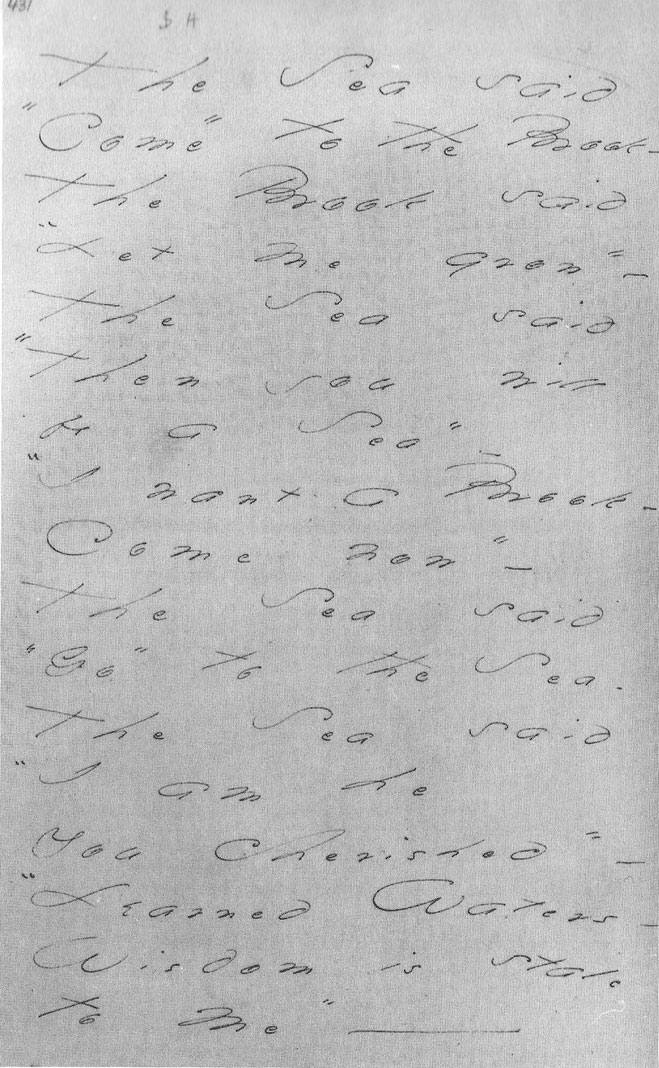 431
S H
The Sea said
"Come" to the Brook –
The Brook said
"Let me grow" –
The Sea said
"Then you will
be a Sea"
"I want a Brook –
Come now" –
The Sea said
"Go" to the Sea.
The Sea said
"I am he
You cherished" –
"Learned Waters –
Wisdom is stale
to Me"